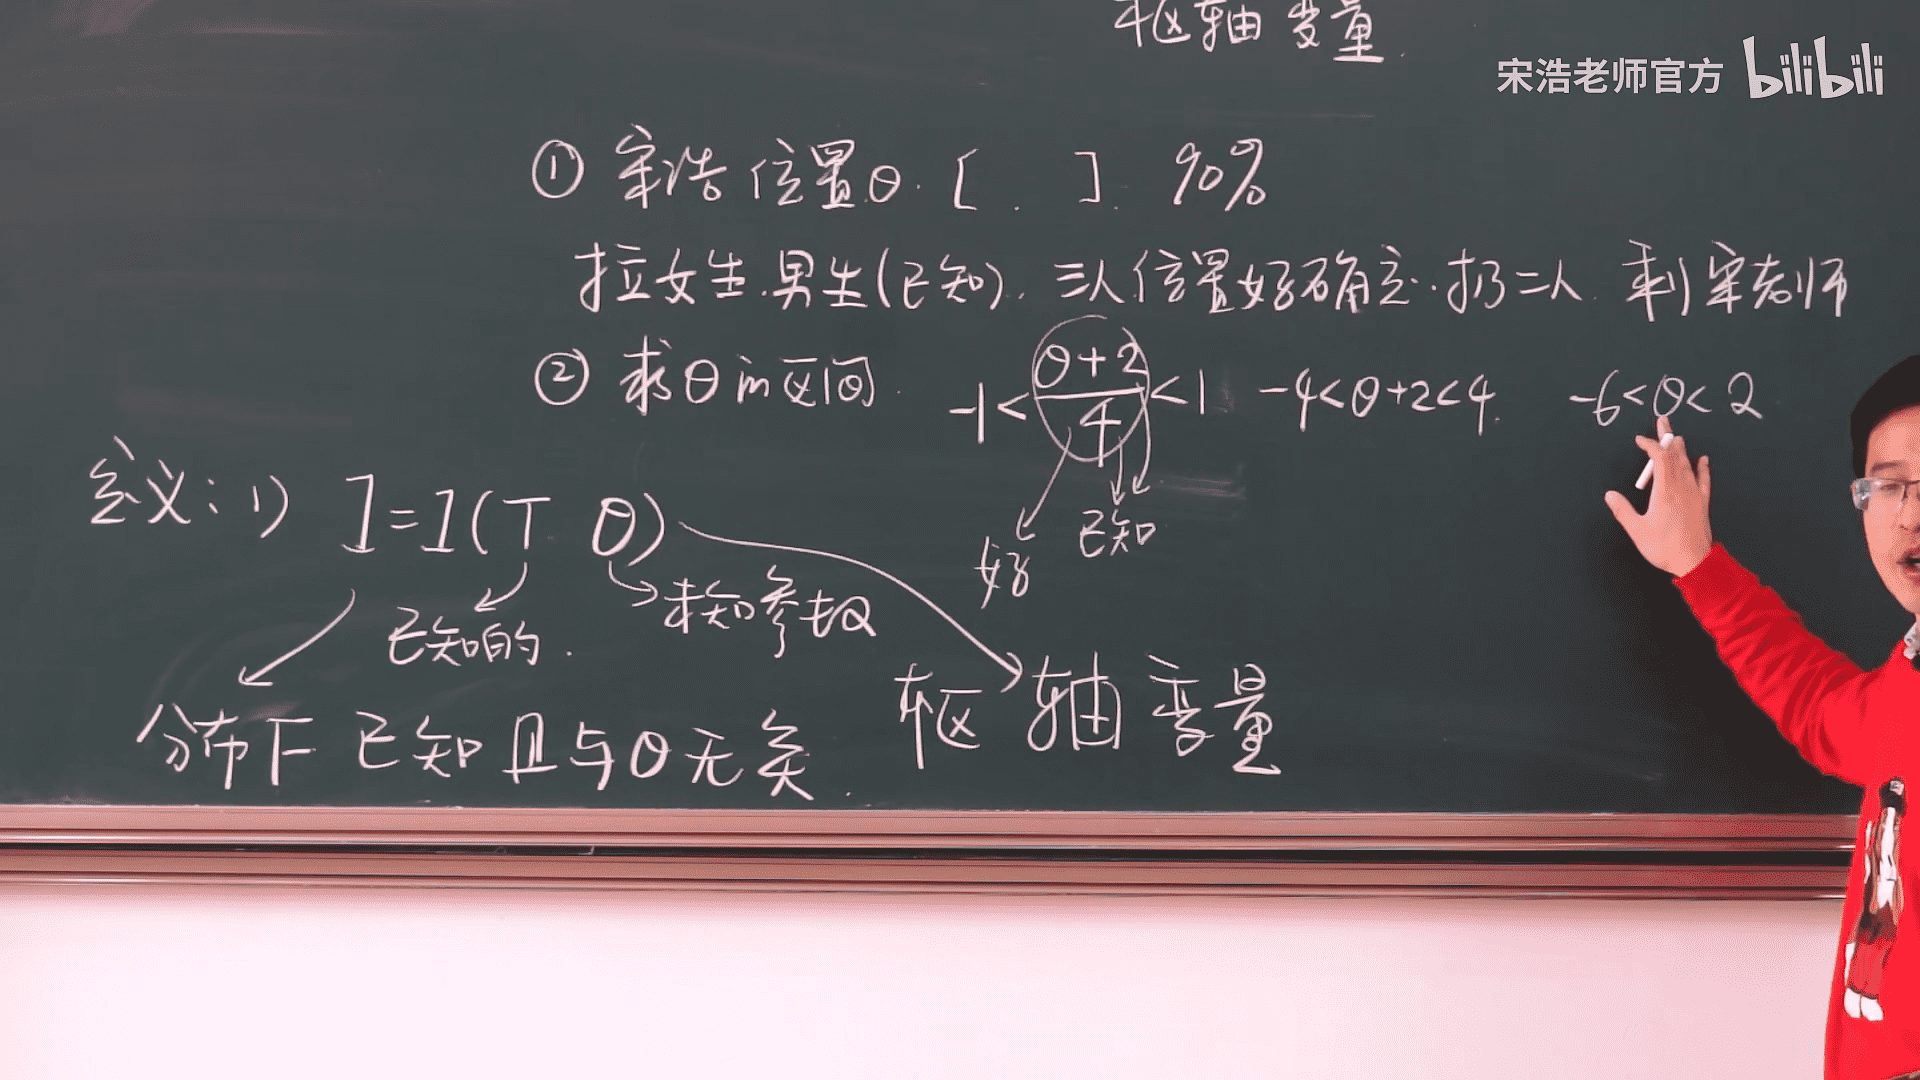 枢轴变量.
宋浩老师官方 bilibili
① 宋浩位置θ. [ . ]. 90%
拉女生.男生(已知). 三人位置好确定.扔二人. 剩宋老师
② 求θ的区间. -1<(θ+2)/4<1 -4<θ+2<4. -6<θ<2
好 已知
定义:1) I=I(T θ)
已知的. 未知参数
分布F 已知且与θ无关. 枢轴变量